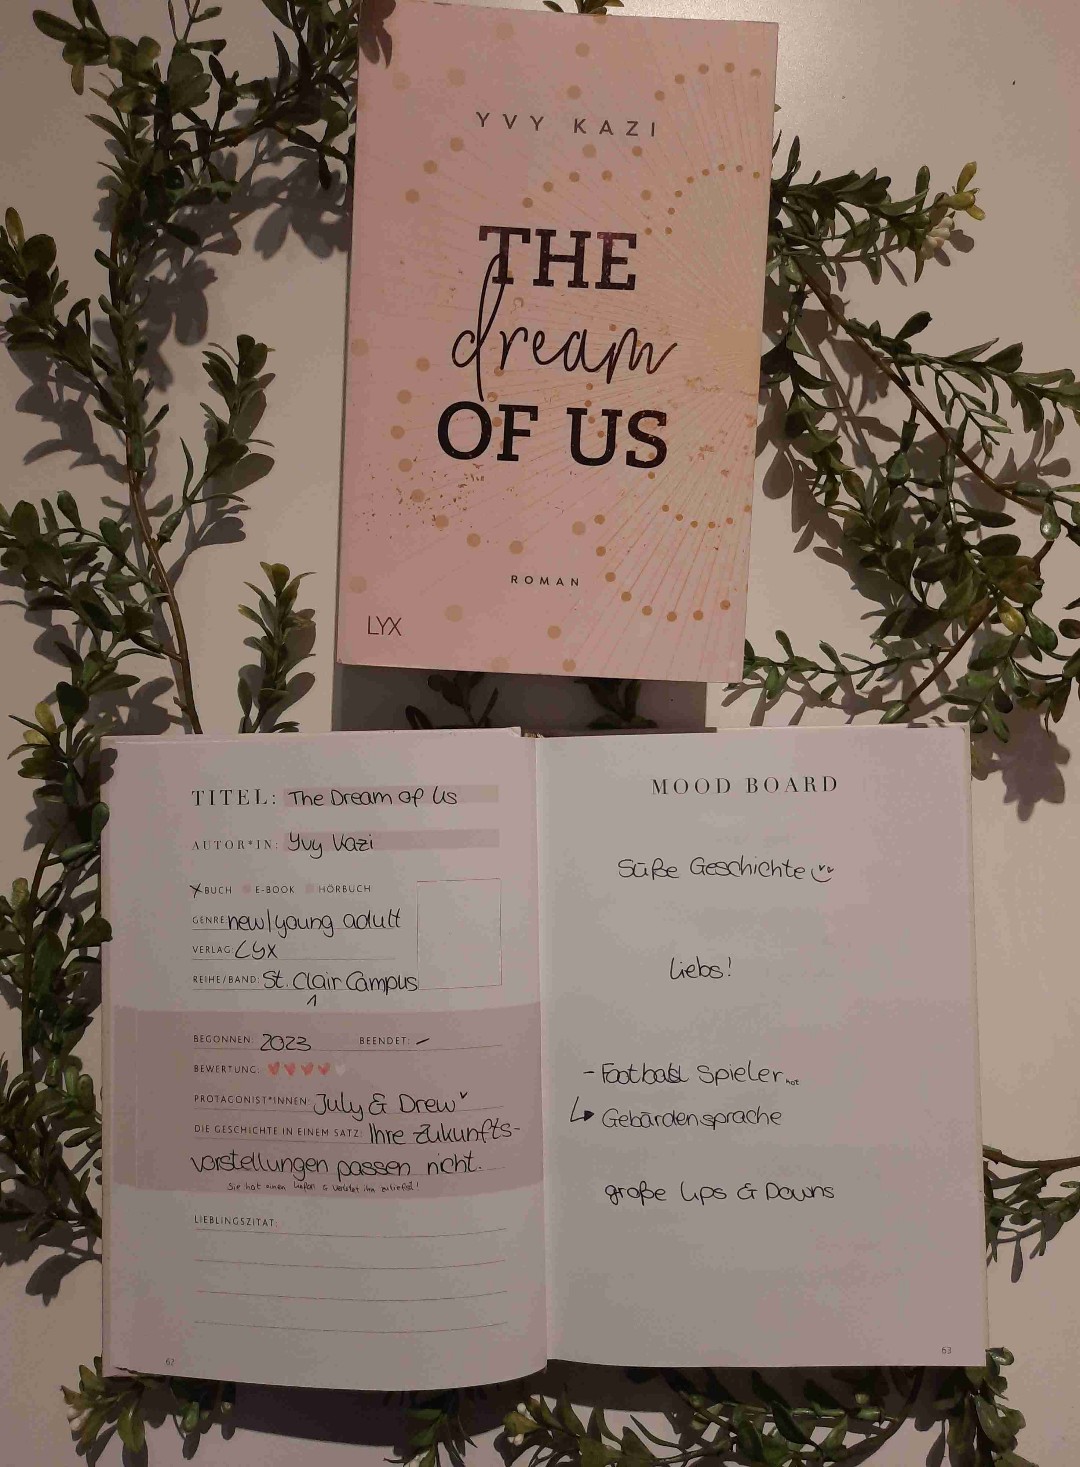 YVY KAZI
THE
dream
OF US
ROMAN
LYX
TITEL: The Dream of Us
AUTOR*IN: Yvy Kazi
X BUCH E-BOOK HÖRBUCH
GENRE: new/young adult
VERLAG: Lyx
REIHE/BAND: St. Clair Campus
1
BEGONNEN: 2023 BEENDET: -
BEWERTUNG:
PROTAGONIST*INNEN: July & Drew
DIE GESCHICHTE IN EINEM SATZ: Ihre Zukunfts-
vorstellungen passen nicht.
Sie hat einen & verletzt ihn zutiefst!
LIEBLINGSZITAT:
62
MOOD BOARD
Süße Geschichte
liebs!
- Football Spieler hot
↳ Gebärdensprache
große Ups & Downs
63